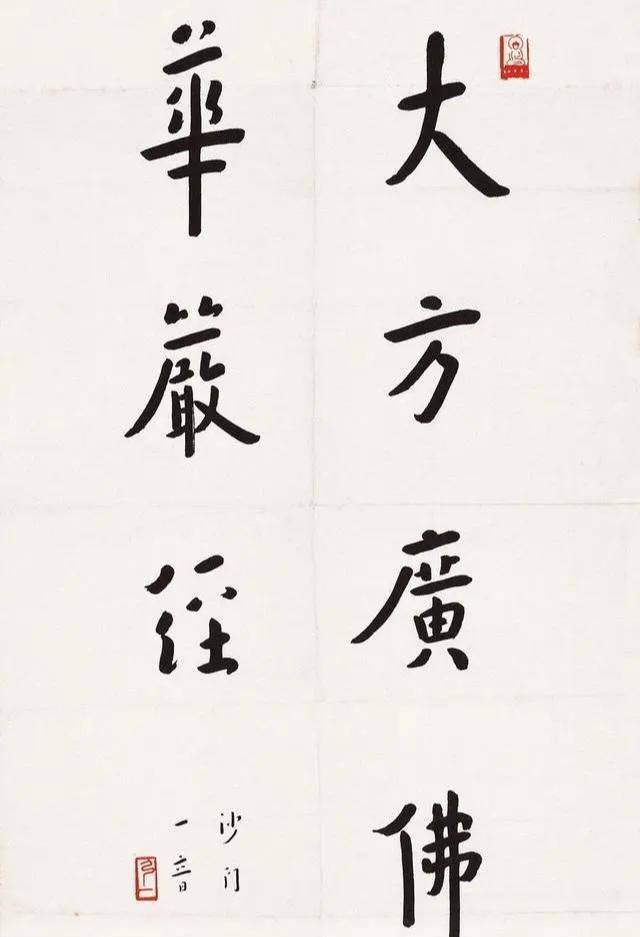 大方廣佛
華嚴經
沙门
一音